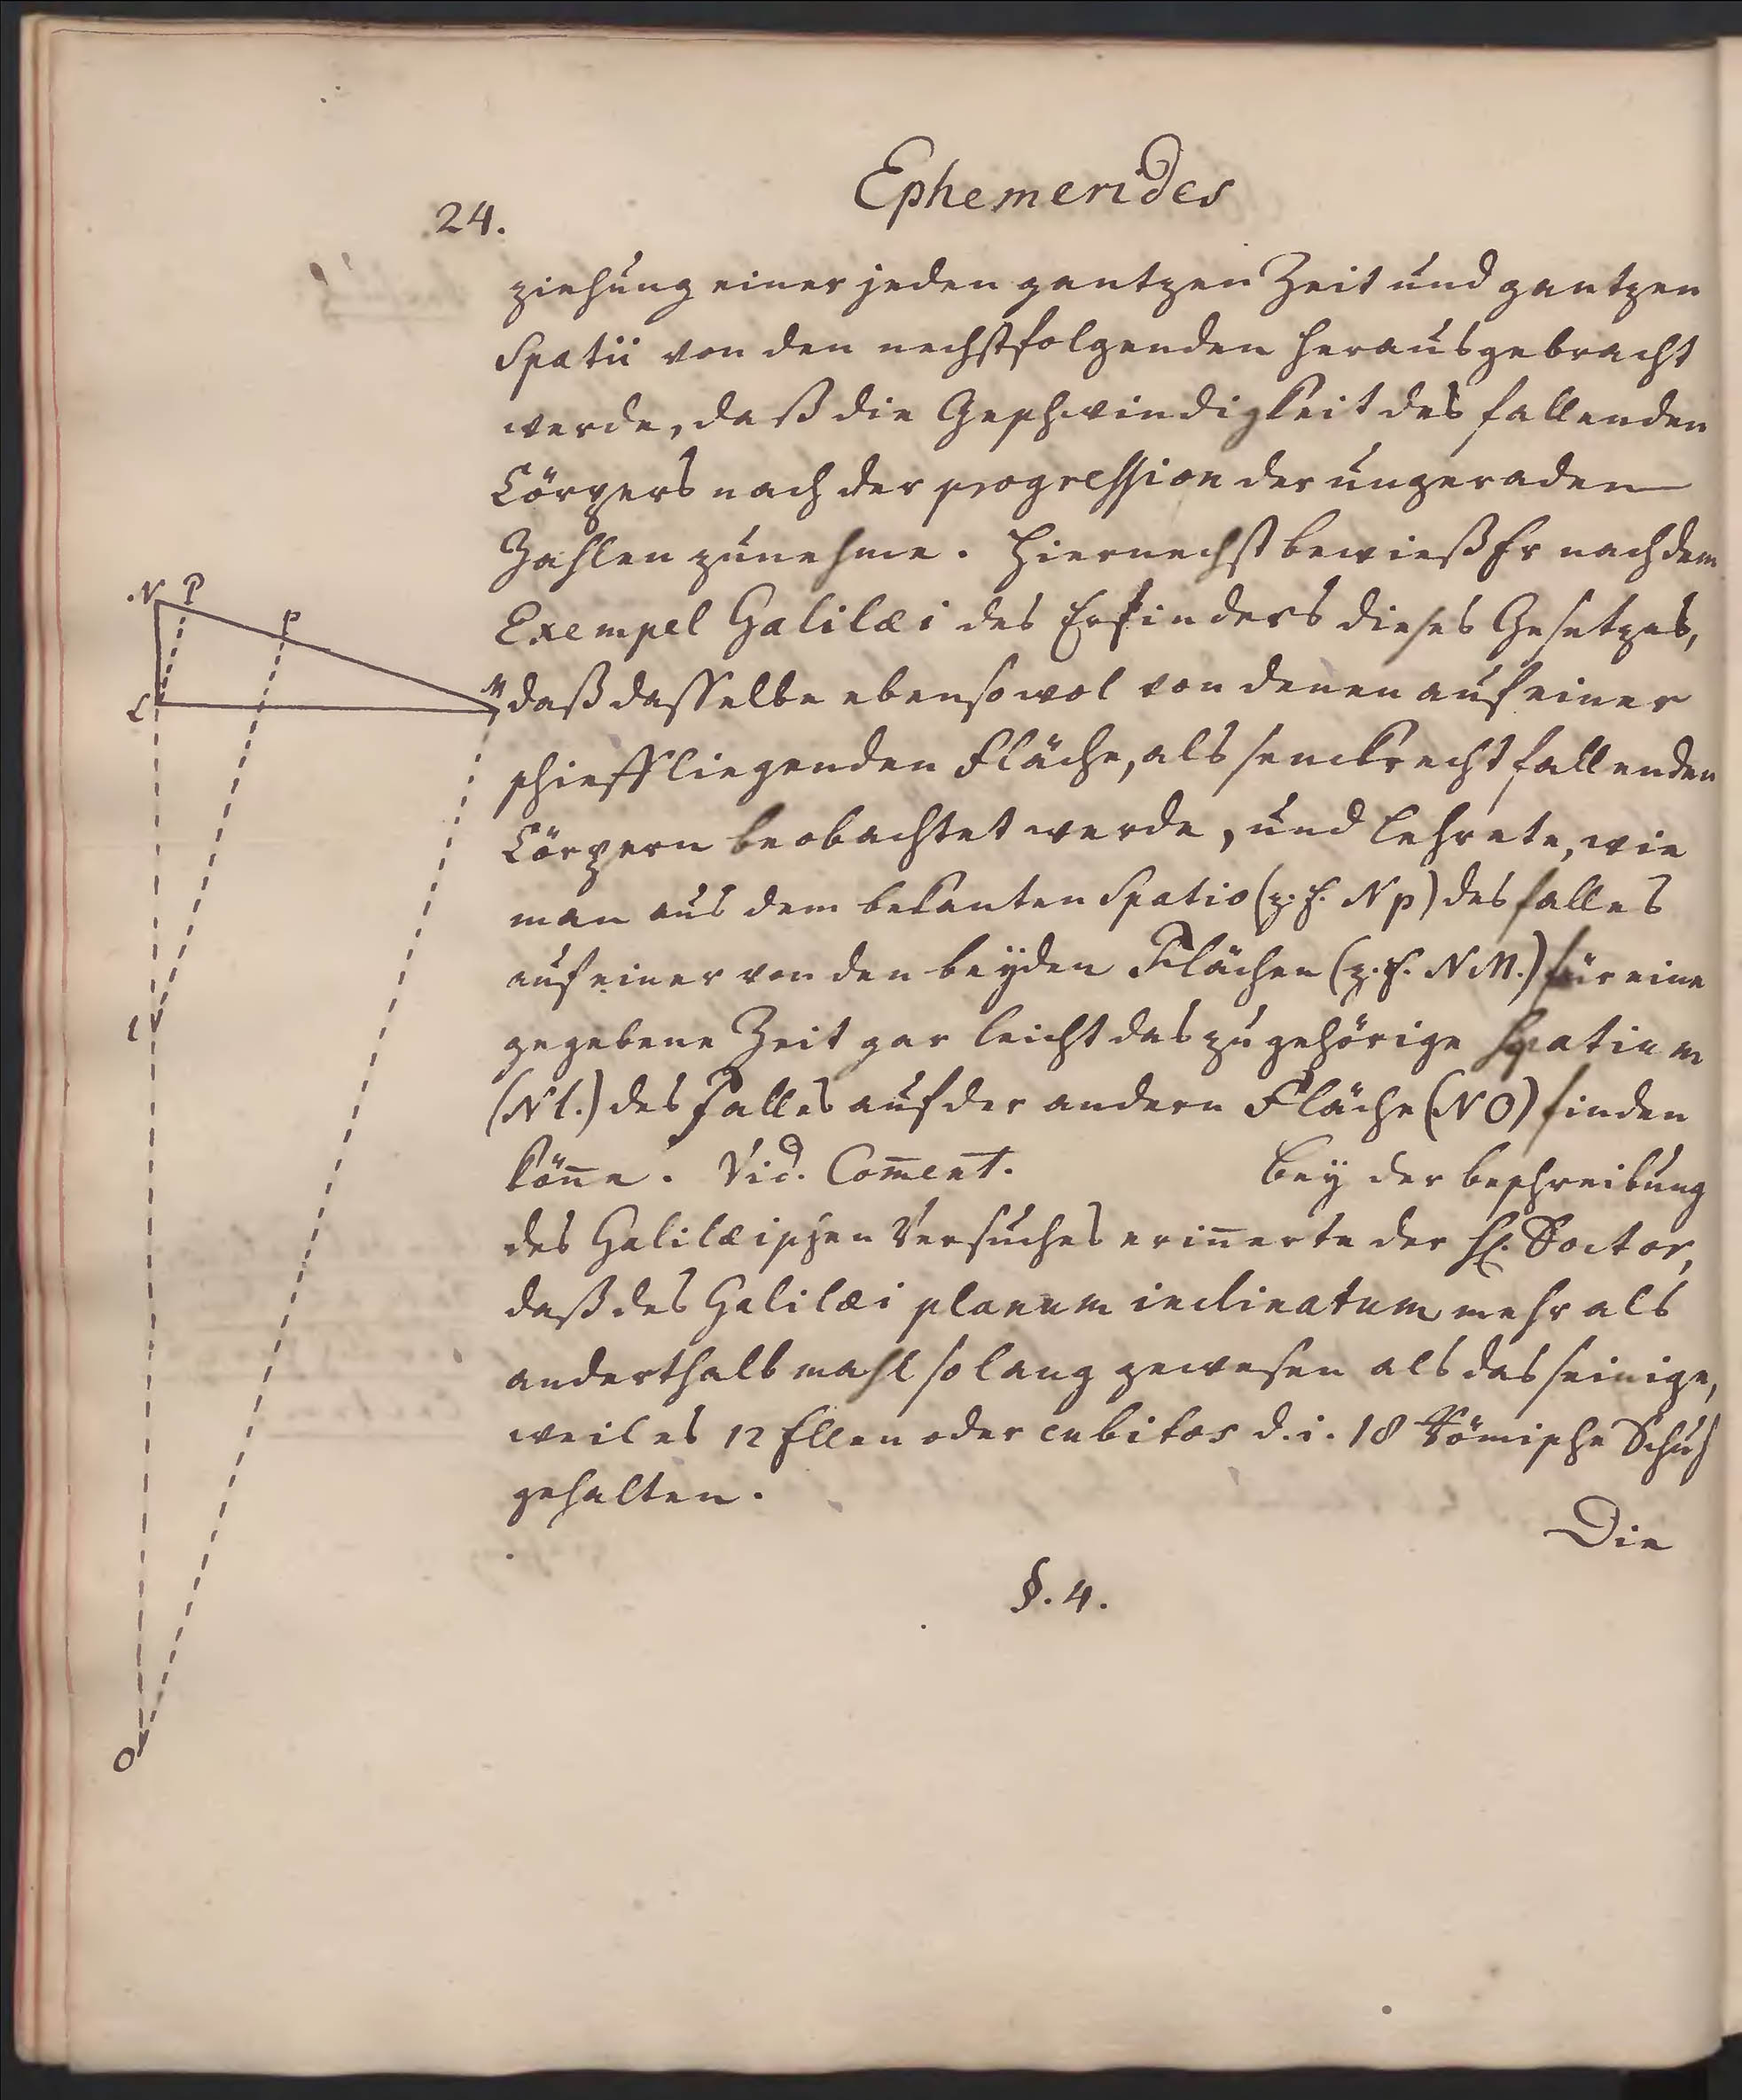 Ephemerides
24.
ziehung einer jeden gantzen Zeit und gantzen
Spatii von den nechstfolgenden herausgebracht
werde, daß die Geschwindigkeit des fallenden
Cörpers nach der progression der ungeraden
Zahlen zunehme. Hiernechst bewieß Er nach dem
Exempel Galilæi des Erfinders dieses Gesetzes,
daß dasselbe ebensowol von denen auf einer
schieffliegenden Fläche, als senckrecht fallenden
Cörpern beobachtet werde, und lehrete, wie
man aus dem bekanten Spatio (z. E. Np) des falles
auf einer von den beÿden Flächen (z. E. NM.) für eine
gegebene Zeit gar leicht das zugehörige Spatium
(Nl.) des Falles auf der andern Fläche (NO) finden
kön̄e. Vid. Com̄ent. beÿ der beschreibung
des Galilæischen Versuches erin̄erte der H. Doctor,
daß des Galilæi planum inclinatum mehr als
anderthalb mahl so lang gewesen als das seinige,
weil es 12 Ellen oder cubitos d. i. 18 Römische Schuh
gehalten.
Die
§. 4.
N P
p
L
M
l
O